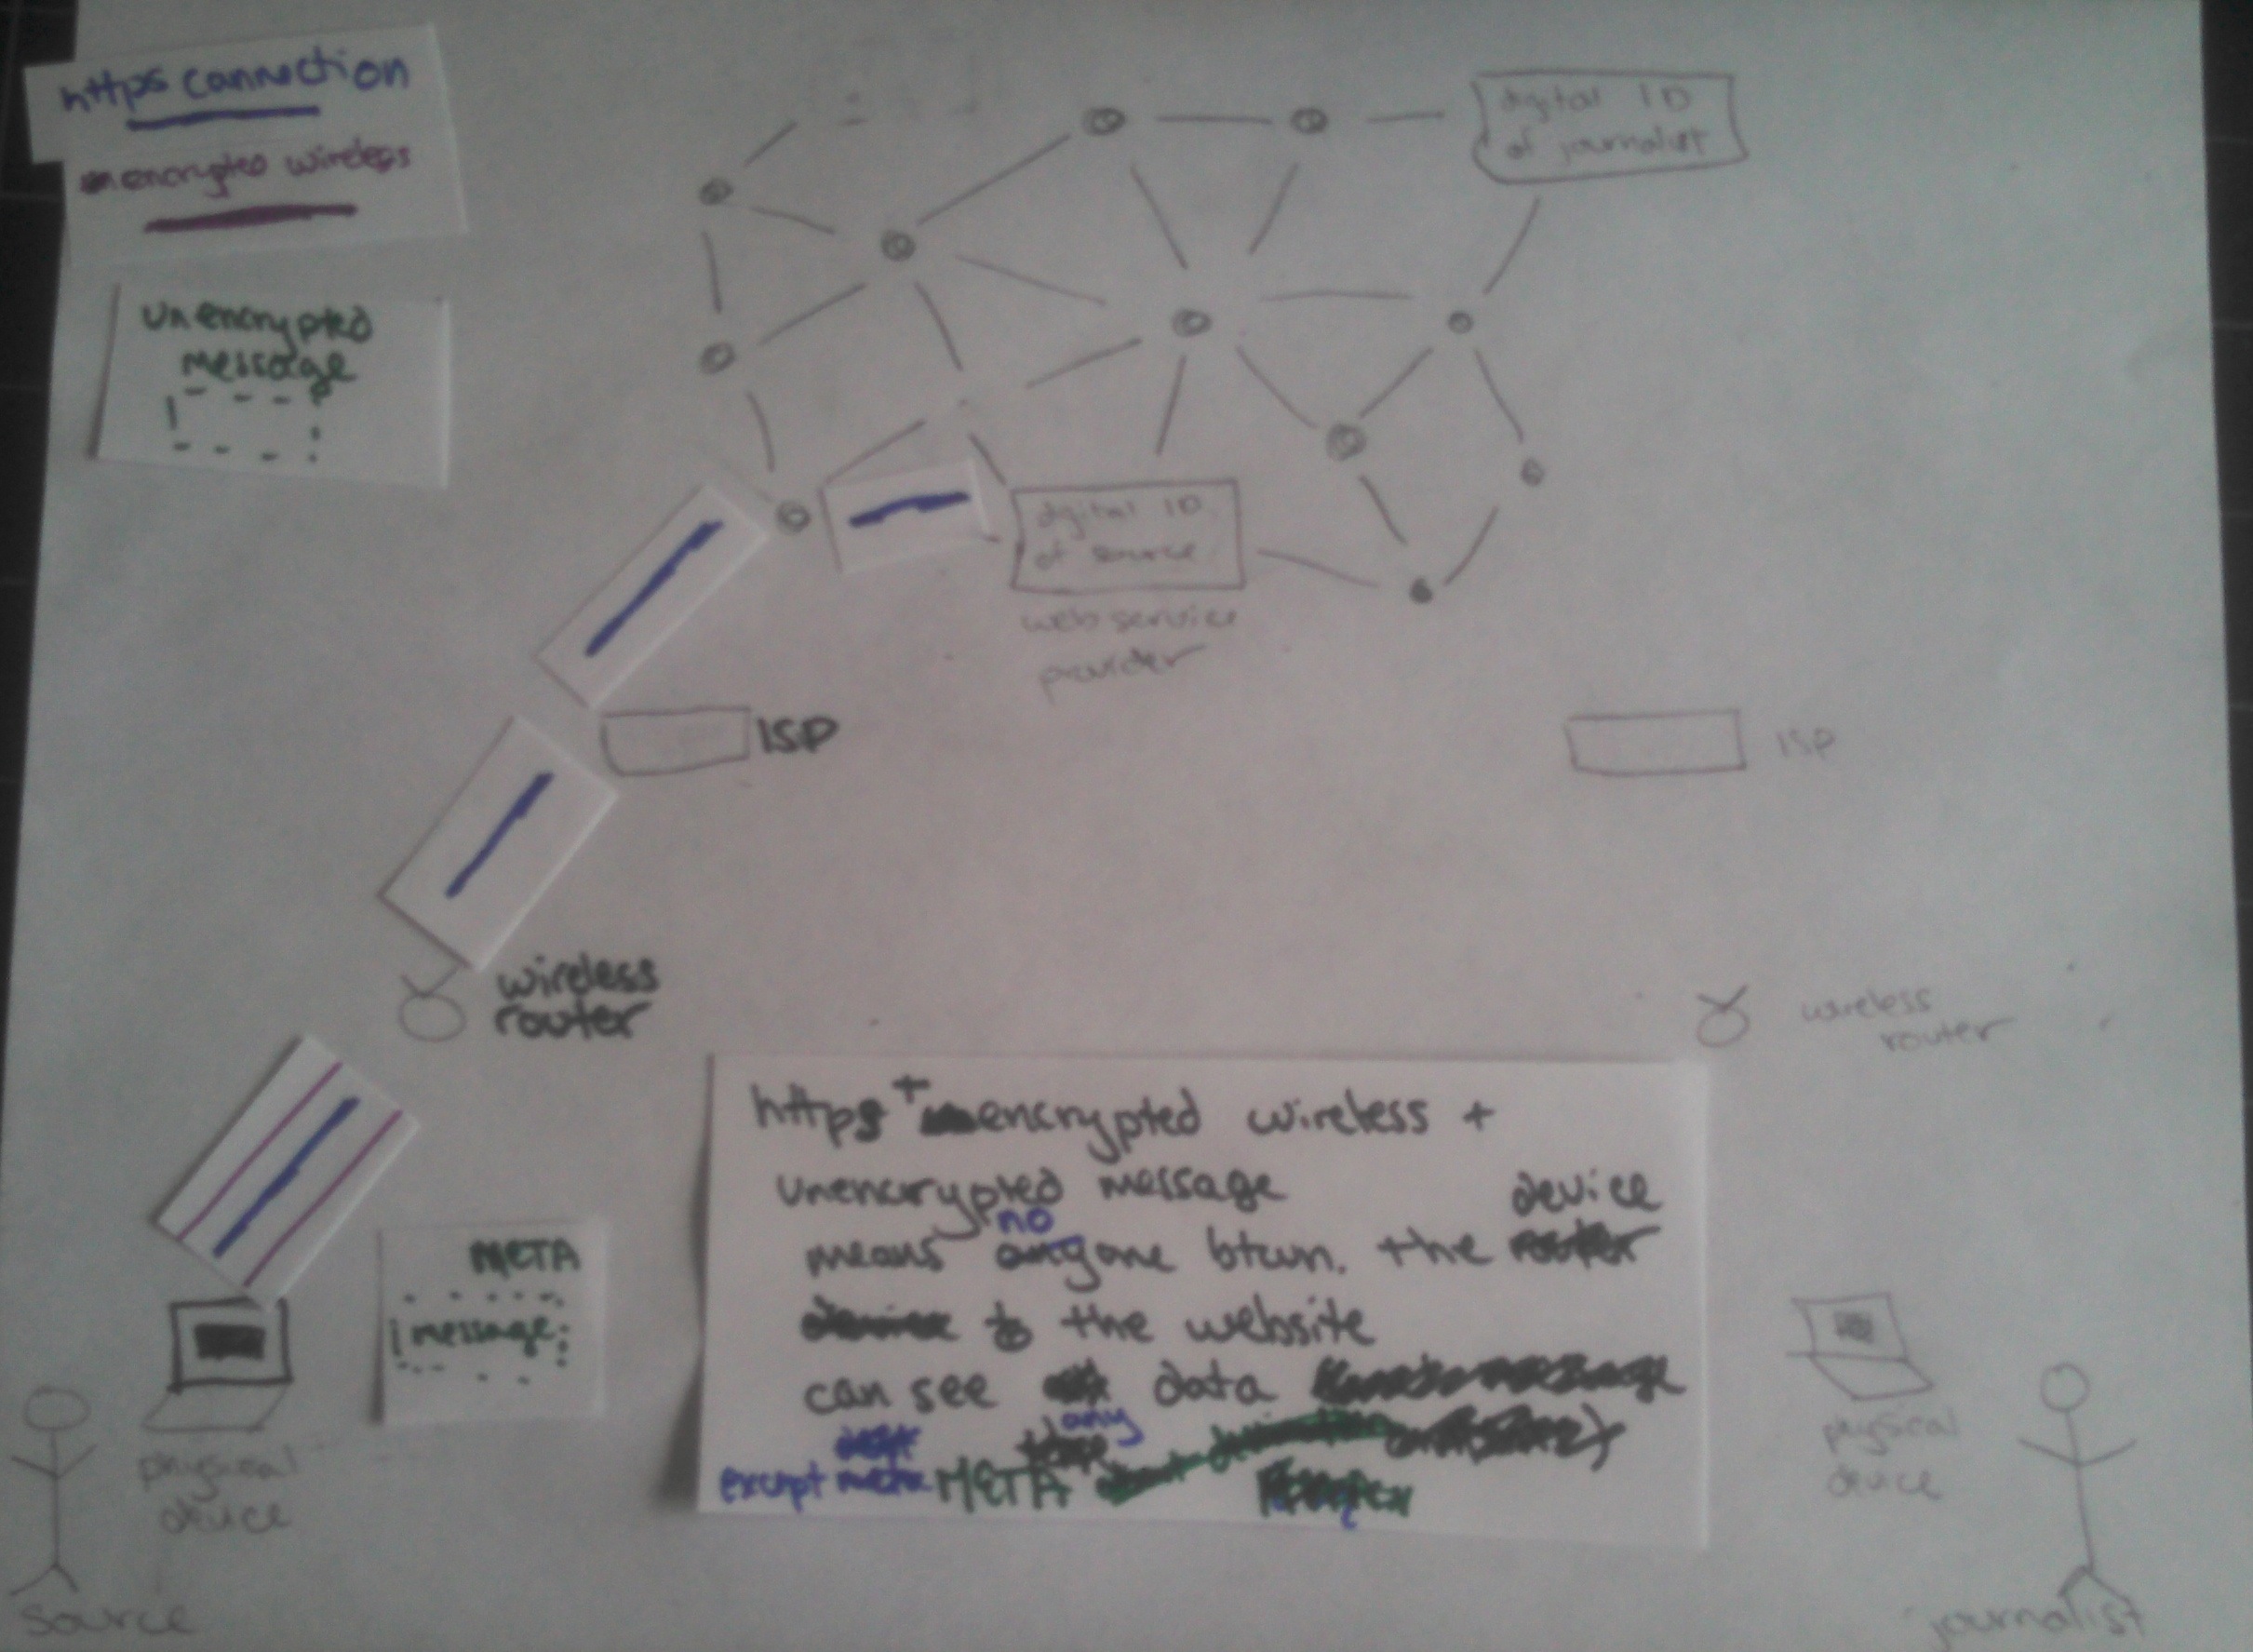 https connection
encrypted wireless
unencrypted
message
digital ID
of journalist
digital ID
of source
web service
provider
ISP
ISP
wireless
router
wireless
router
https + encrypted wireless +
unencrypted message
device
no
means anyone btwn. the router
device to the website
can see data
any
except meta META
META
message
physical
device
physical
device
source
journalist